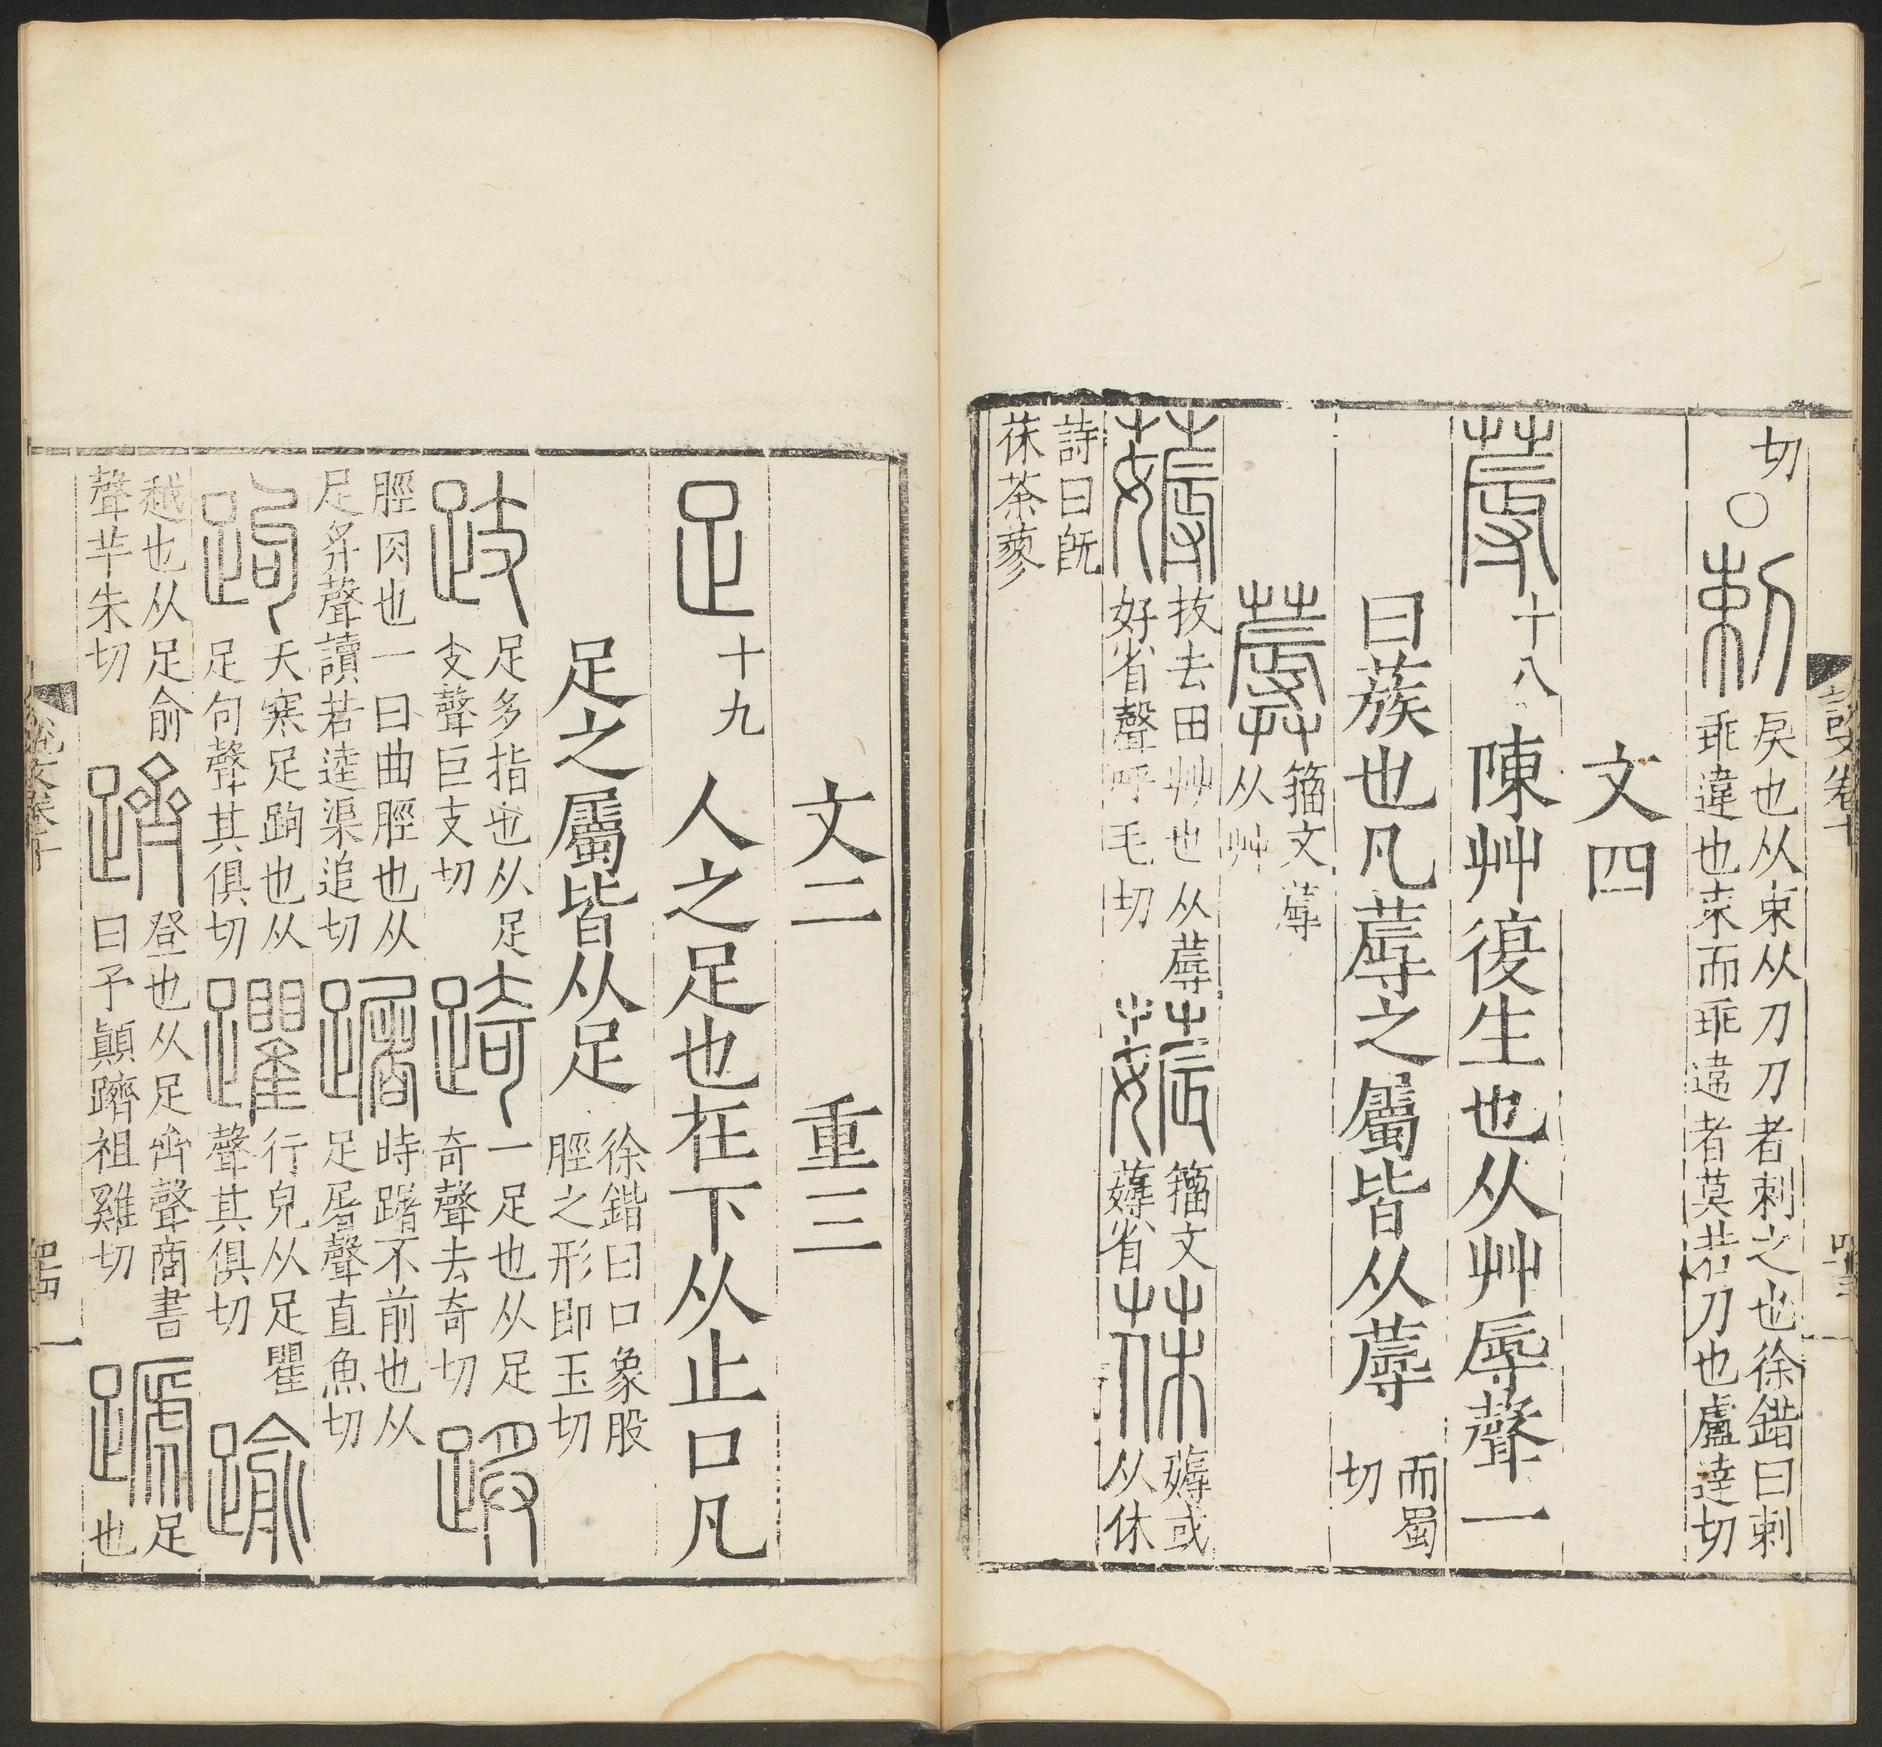 切○𠝤戾也从束从刀刀者刺之也徐鍇曰刺
乖違也束而乖違者莫若刀也盧達切
文四
蓐十八陳艸復生也从艸辱聲一
曰蔟也凡蓐之屬皆从蓐而蜀
切
蓐籀文蓐
从艸
薅拔去田艸也从蓐
好省聲呼毛切
薅籀文
薅省
茠薅或
从休
詩曰旣
茠荼蓼
說文卷十
文二 重三
足十九人之足也在下从止口凡
足之屬皆从足徐鍇曰口象股
脛之形即玉切
跂足多指也从足
支聲巨支切
踦一足也从足
奇聲去奇切
脛肉也一曰曲脛也从
足𢌳聲讀若逵渠追切
踞時躇不前也从
足屠聲直魚切
跔天寒足跔也从
足句聲其俱切
躣行皃从足瞿
聲其俱切
踰
越也从足俞
聲羊朱切
躋登也从足齊聲商書
曰予顚躋祖雞切
蹏足
也
說文卷十
一